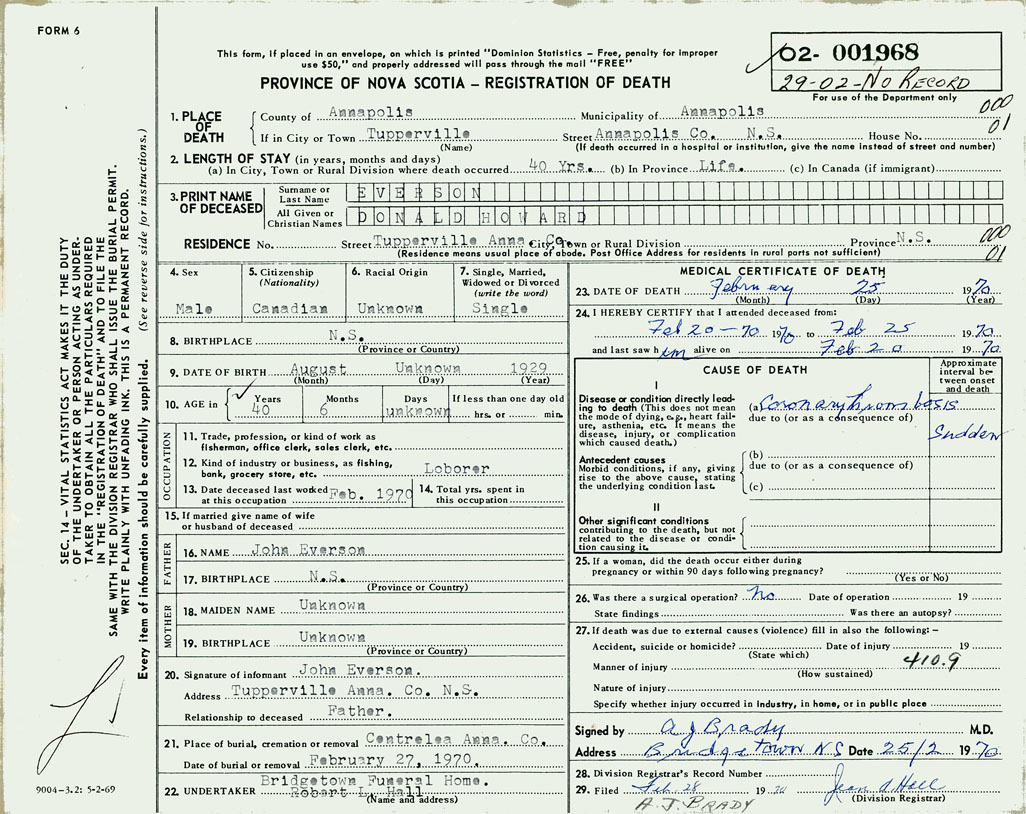 FORM 6
This form, if placed in an envelope, on which is printed "Dominion Statistics – Free, penalty for improper
use $50," and properly addressed will pass through the mail "FREE"
PROVINCE OF NOVA SCOTIA – REGISTRATION OF DEATH
02- 001968
29-02-No RECORD
For use of the Department only
000
01
1. PLACE OF DEATH
County of Annapolis Municipality of Annapolis
If in City or Town Tupperville Street Annapolis Co. N.S. House No.
(Name) (If death occurred in a hospital or institution, give the name instead of street and number)
2. LENGTH OF STAY (in years, months and days)
(a) In City, Town or Rural Division where death occurred 40 Yrs. (b) In Province Life. (c) In Canada (if immigrant)
3. PRINT NAME OF DECEASED
Surname or Last Name EVERSON
All Given or Christian Names DONALD HOWARD
RESIDENCE No. Street Tupperville Anna. Co. City, Town or Rural Division Province N.S.
(Residence means usual place of abode. Post Office Address for residents in rural parts not sufficient)
000
01
4. Sex
Male
5. Citizenship
(Nationality)
Canadian
6. Racial Origin
Unknown
7. Single, Married,
Widowed or Divorced
(write the word)
Single
8. BIRTHPLACE N.S.
(Province or Country)
9. DATE OF BIRTH August Unknown 1929
(Month) (Day) (Year)
10. AGE in Years Months Days If less than one day old
40 6 unknown hrs. or min.
OCCUPATION
11. Trade, profession, or kind of work as
fisherman, office clerk, sales clerk, etc.
12. Kind of industry or business, as fishing,
bank, grocery store, etc. Loborer
13. Date deceased last worked
at this occupation Feb. 1970
14. Total yrs. spent in
this occupation
15. If married give name of wife
or husband of deceased
FATHER
16. NAME John Everson
17. BIRTHPLACE N.S.
(Province or Country)
MOTHER
18. MAIDEN NAME Unknown
19. BIRTHPLACE Unknown
(Province or Country)
20. Signature of informant John Everson.
Address Tupperville Anna. Co. N.S.
Relationship to deceased Father.
21. Place of burial, cremation or removal Centrelea Anna. Co.
Date of burial or removal February 27, 1970.
Bridgetown Funeral Home.
22. UNDERTAKER Robert L. Hall
(Name and address)
MEDICAL CERTIFICATE OF DEATH
23. DATE OF DEATH February 25 1970
(Month) (Day) (Year)
24. I HEREBY CERTIFY that I attended deceased from:
Feb 20-70 1970 to Feb 25 1970
and last saw him alive on Feb 20 1970
CAUSE OF DEATH
Approximate
interval be-
tween onset
and death
I
Disease or condition directly lead-
ing to death (This does not mean
the mode of dying, e.g., heart fail-
ure, asthenia, etc. It means the
disease, injury, or complication
which caused death.)
(a) Coronary thrombosis
due to (or as a consequence of)
Sudden
Antecedent causes
Morbid conditions, if any, giving
rise to the above cause, stating
the underlying condition last.
(b)
due to (or as a consequence of)
(c)
II
Other significant conditions
contributing to the death, but not
related to the disease or condi-
tion causing it.
25. If a woman, did the death occur either during
pregnancy or within 90 days following pregnancy?
(Yes or No)
26. Was there a surgical operation? No Date of operation 19
State findings Was there an autopsy?
27. If death was due to external causes (violence) fill in also the following: –
Accident, suicide or homicide? Date of injury 19
(State which)
Manner of injury 410.9
(How sustained)
Nature of injury
Specify whether injury occurred in industry, in home, or in public place
Signed by A J Brady M.D.
Address Bridgetown NS Date 25/2 1970
28. Division Registrar's Record Number
29. Filed Feb 28 1970 Jean A Hall
(Division Registrar)
A.J. BRADY
SEC. 14 – VITAL STATISTICS ACT MAKES IT THE DUTY
OF THE UNDERTAKER OR PERSON ACTING AS UNDER-
TAKER TO OBTAIN ALL THE PARTICULARS REQUIRED
IN THE "REGISTRATION OF DEATH" AND TO FILE THE
SAME WITH THE DIVISION REGISTRAR WHO SHALL ISSUE THE BURIAL PERMIT.
WRITE PLAINLY WITH UNFADING INK. THIS IS A PERMANENT RECORD.
Every item of information should be carefully supplied. (See reverse side for instructions.)
9004-3.2: 5-2-69